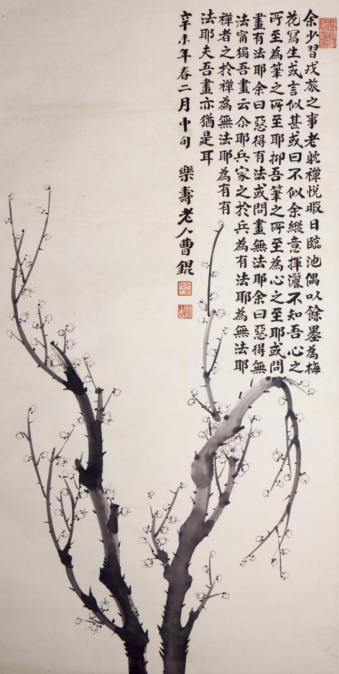 余少習戎旅之事老躭禪悅暇日臨池偶以餘墨為梅
花寫生或言似甚或曰不似余縱意揮灑不知吾心之
所至為筆之所至耶抑吾筆之所至為心之至耶或問
畫有法耶余曰惡得有法或問畫無法耶余曰惡得無
法甯獨吾畫云尒耶兵家之於兵為有法耶為無法耶
禪者之於禪為無法耶為有有
法耶夫吾畫亦猶是耳
辛未年春二月中旬
樂壽老人曹錕